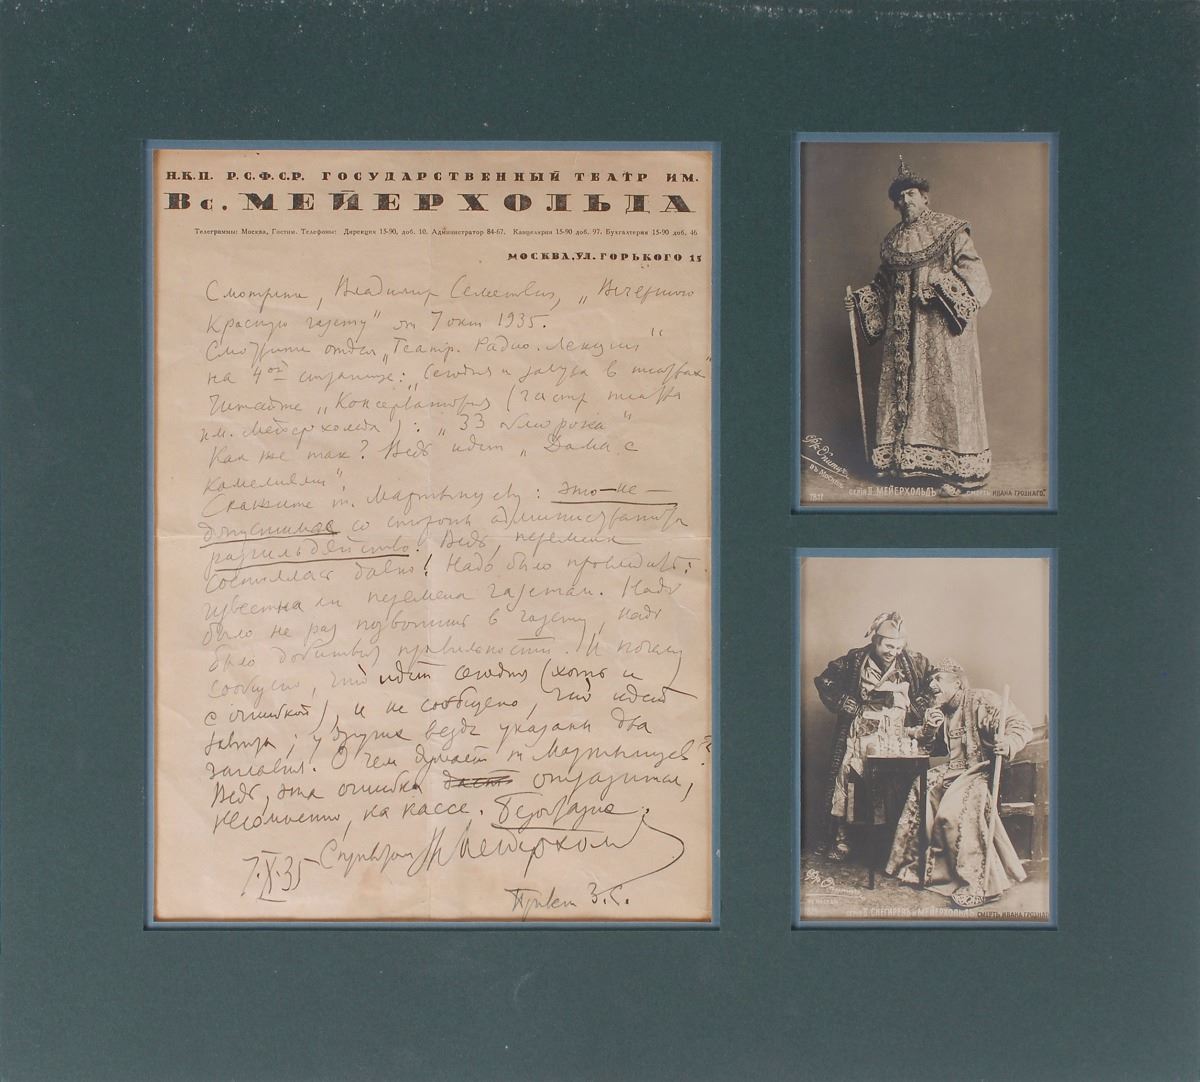 Н.К.П. Р.С.Ф.С.Р. ГОСУДАРСТВЕННЫЙ ТЕАТР ИМ.
Вс. МЕЙЕРХОЛЬДА
Телеграммы: Москва, Гостим. Телефоны: Дирекция 15-90, доб. 10. Администратор 84-67. Канцелярия 15-90 доб. 97. Бухгалтерия 15-90 доб. 46
МОСКВА, УЛ. ГОРЬКОГО 15
Смотрите, Владимир Семенович, „Вечернюю
Красную газету" от 7 окт 1935.
Смотрите отдел „Театр. Радио. Лекции"
на 4ой странице: „Сегодня и завтра в театрах"
Читайте „Консерватория (гастр театра
им. Мейерхольда): „33 обморока"
Как же так? Ведь идет „Дама с
камелиями".
Скажите т. Мартынцеву: это—не—
допустимое со стороны администратора
разгильдяйство. Ведь перемена
состоялась давно! Надо было проследить:
известна ли перемена газетам. Надо
было не раз позвонить в газету, надо
было добиться правильности. И почему
сообщено, что идет сегодня (хоть и
с ошибкой), и не сообщено, что идет
завтра; у других ведь указаны два
заглавия. О чем думает т. Мартынцев?
Ведь эта ошибка отразится,
несомненно, на кассе. Безобразие.
7.X.35 Мейерхольд
Привет З.С.
Фр. Опитц
въ Москвѣ
СЕРІЯ II. МЕЙЕРХОЛЬДЪ „СМЕРТЬ ИВАНА ГРОЗНАГО."
Фр. Опитц
СЕРІЯ II. СНЕГИРЕВЪ и МЕЙЕРХОЛЬДЪ „СМЕРТЬ ИВАНА ГРОЗНАГО